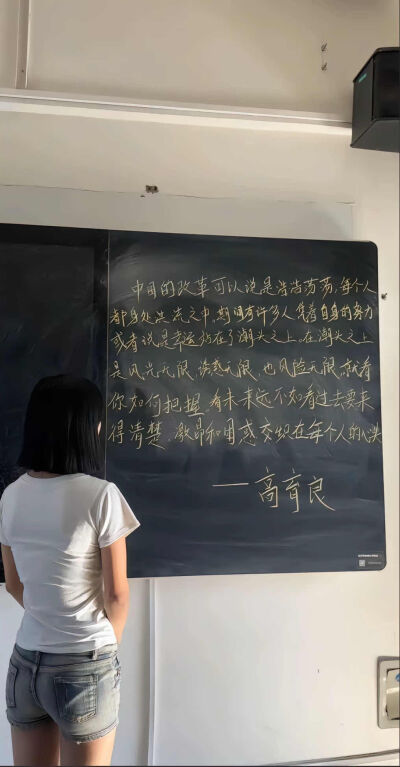 中国的改革可以说是浩浩荡荡，每个人
都身处洪流之中，期间有许多人凭着自身的努力
或者说是幸运站在了潮头之上，在潮头之上
是风光无限，诱惑无限，也风险无限，就看
你如何把握，看未来远不如看过去要来
得清楚，激昂和困惑交织在每个人的心头
——高育良